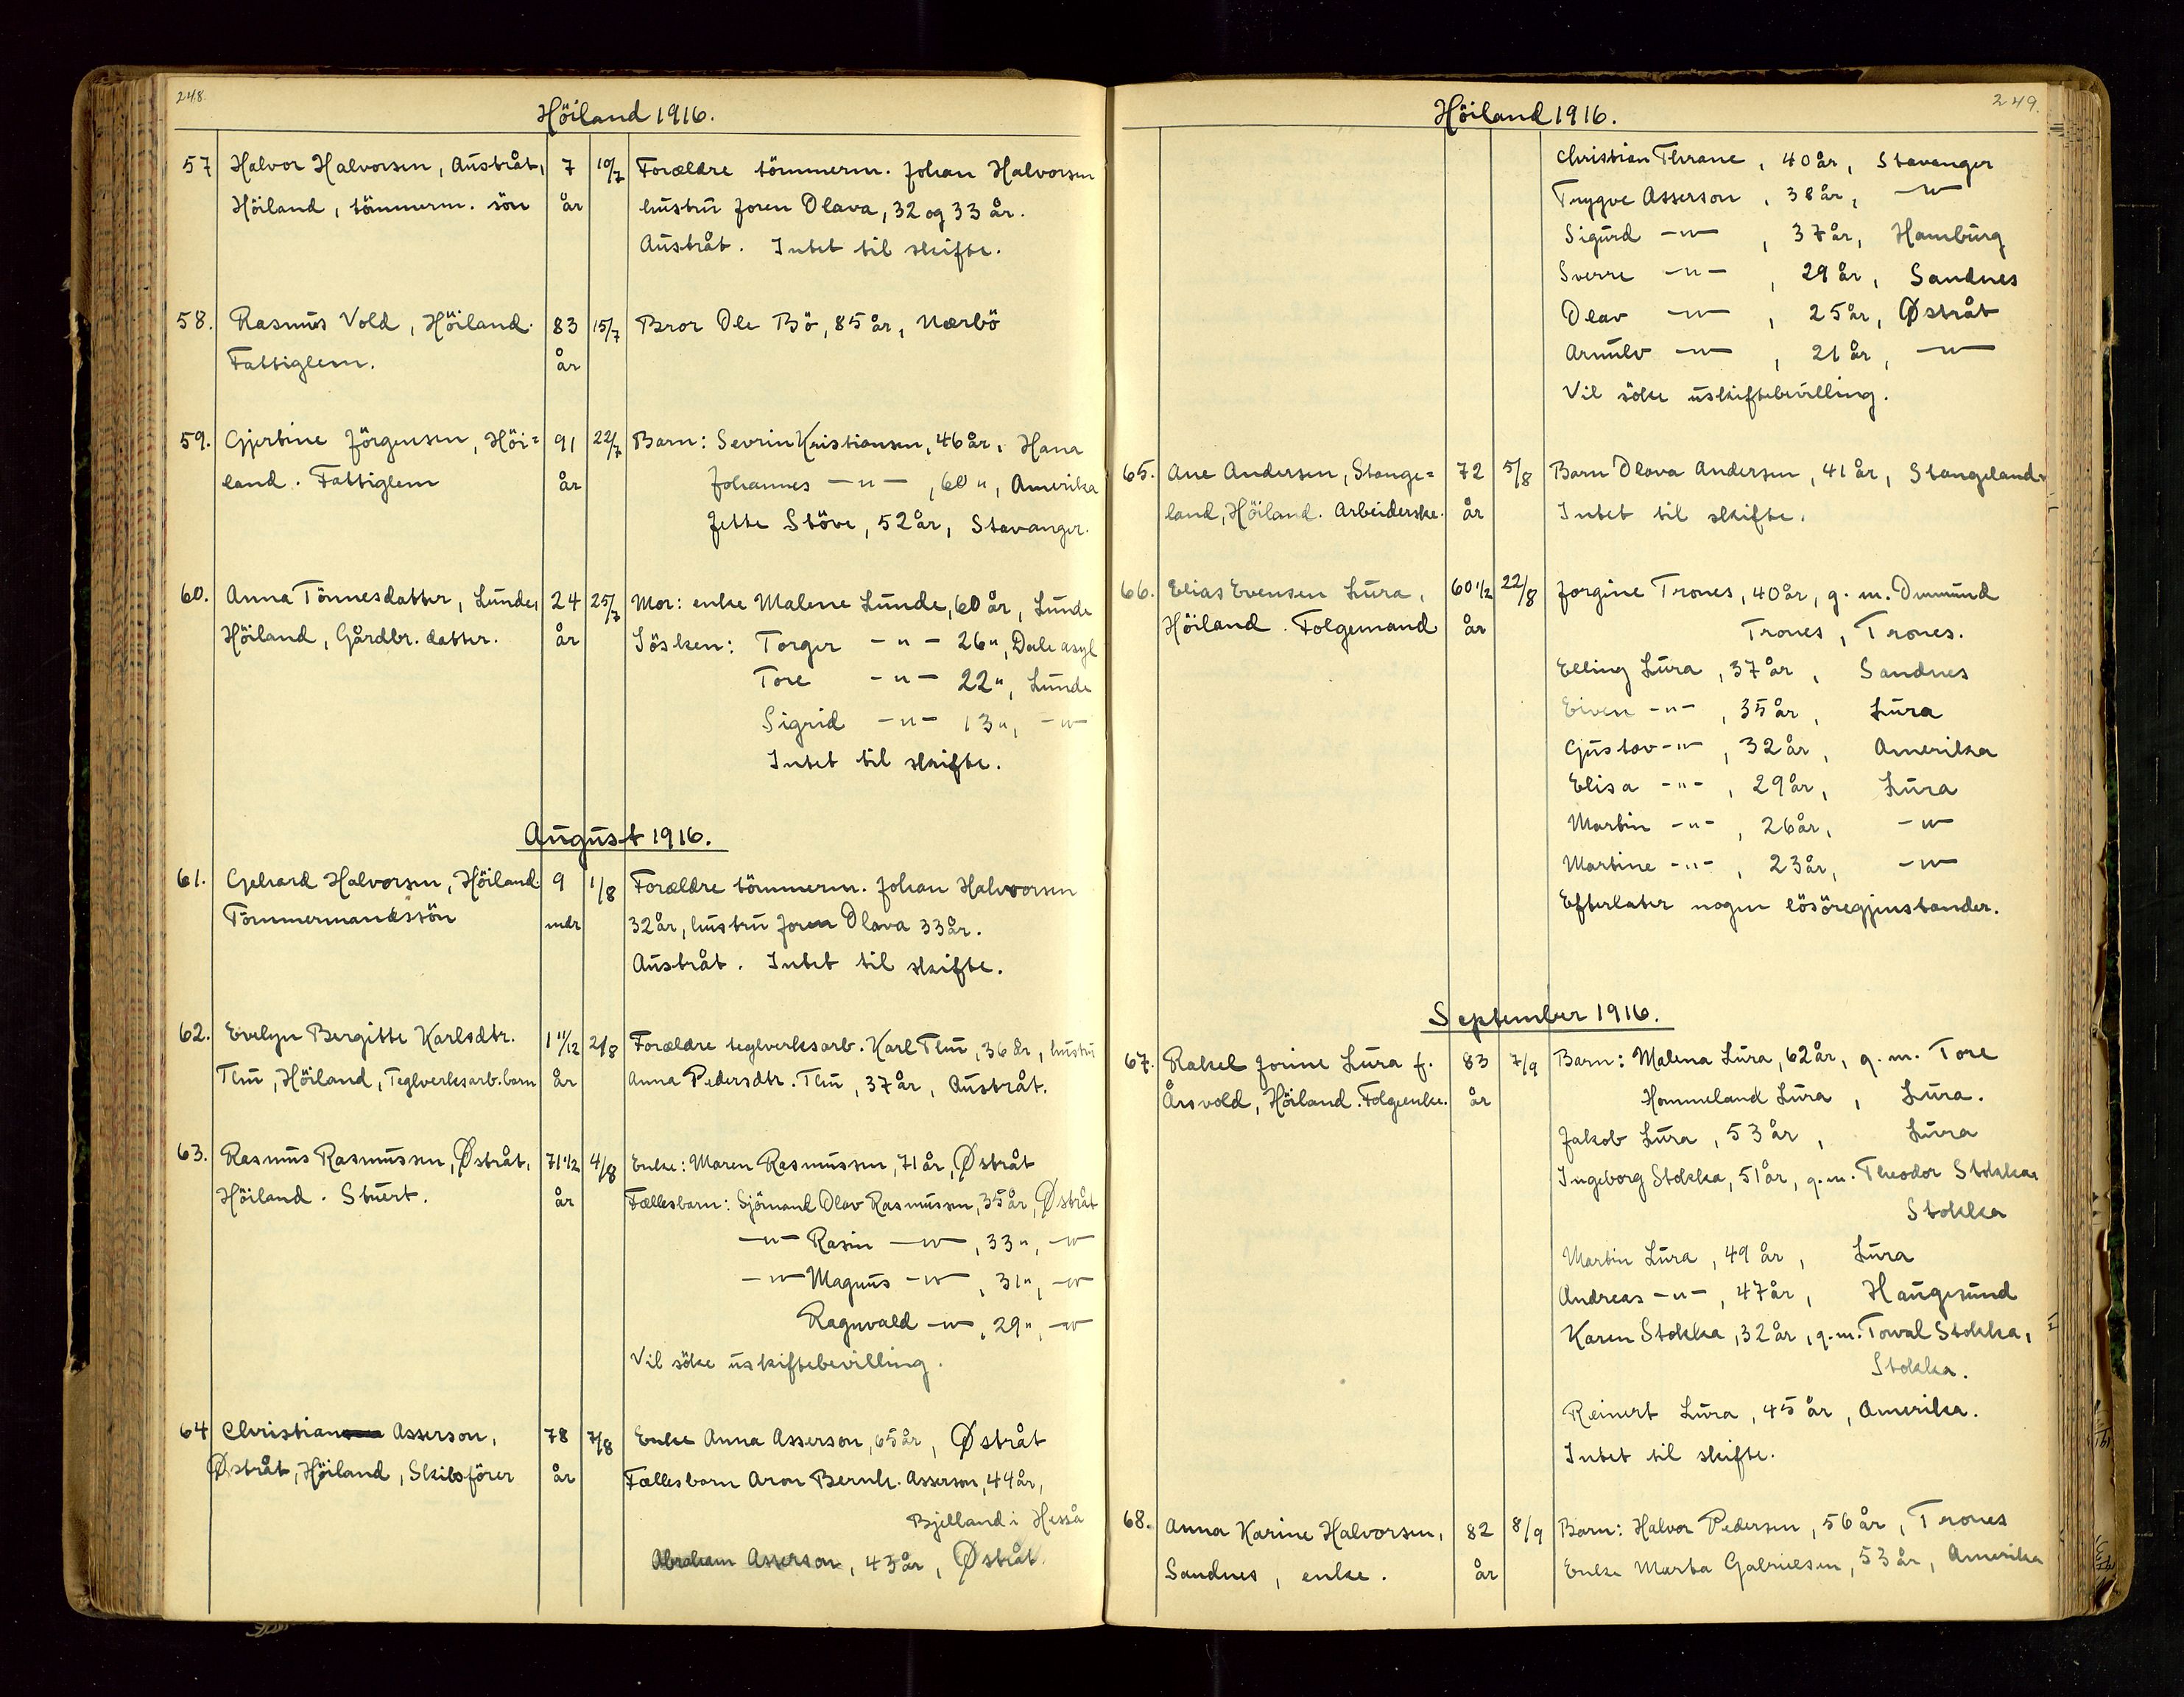 248.
Höiland 1916.
57 Halvor Halvorsen, Austråt, 7 10/7 Forældre tömmerm. Johan Halvorsen
Höiland, tömmerm. sön år hustru Joren Olava, 32 og 33 år.
Austråt. Intet til skifte.
58. Rasmus Vold, Höiland. 83 15/7 Bror Ole Bö, 85 år, Nærbö
Fattiglem. år
59. Gjertine Jörgensen, Höi= 91 22/7 Barn: Sevrin Kristiansen, 46 år, Hana
land. Fattiglem år Johannes -"- , 60 ", Amerika
Jette Stöve, 52 år, Stavanger.
60. Anna Tönnesdatter, Lunde, 24 25/7 Mor: enke Malene Lunde, 60 år, Lunde
Höiland, Gårdbr. datter. år Sösken: Torger -"- 26 ", Dale asyl
Tore -"- 22 ", Lunde
Sigrid -"- 13 ", -"-
Intet til skifte.
August 1916.
61. Gehard Halvorsen, Höiland. 9 1/8 Forældre tömmerm. Johan Halvorsen
Tömmermandssön mdr 32 år, hustru Joren Olava 33 år.
Austråt. Intet til skifte.
62. Evelyn Bergitte Karlsdtr. 1 11/12 2/8 Forældre teglverksarb. Karl Thu, 36 år, hustru
Thu, Höiland, Teglverksarb. barn år Anna Pedersdtr. Thu, 37 år, Austråt.
63. Rasmus Rasmussen, Østråt, 71 1/2 4/8 Enke: Maren Rasmussen, 71 år, Østråt
Höiland. Stuert. år Fællesbarn: Sjömand Olav Rasmussen, 35 år, Østråt
-"- Rasin -"- , 33 ", -"-
-"- Magnus -"- , 31 ", -"-
Ragnvald -"- , 29 ", -"-
Vil söke uskiftebevilling.
64 Christian Asserson, 78 7/8 Enke Anna Asserson, 65 år, Østråt
Østråt, Höiland, Skibsförer år Fællesbarn Aron Bernh. Asserson, 44 år,
Bjelland i Hesså
Abraham Asserson, 43 år, Østråt.
249.
Höiland 1916.
Christian Thrane, 40 år, Stavanger
Trygve Asserson, 38 år, -"-
Sigurd -"- , 37 år, Hamburg
Sverre -"- , 29 år, Sandnes
Olav -"- , 25 år, Østråt
Arnulv -"- , 21 år, -"-
Vil söke uskiftebevilling.
65. Ane Andersen, Stange= 72 5/8 Barn Olava Andersen, 41 år, Stangeland.
land, Höiland. Arbeiderske. år Intet til skifte.
66. Elias Evensen Lura, 60 1/2 22/8 Jorgine Trones, 40 år, g. m. Ommund
Höiland. Folgemand år Trones, Trones.
Elling Lura, 37 år, Sandnes
Eiven -"- , 35 år, Lura
Gustav -"- , 32 år, Amerika
Elisa -"- , 29 år, Lura
Martin -"- , 26 år, -"-
Martine -"- , 23 år, -"-
Efterlater nogen lösöregjenstander.
September 1916.
67. Rakel Jorine Lura f. 83 7/9 Barn: Malena Lura, 62 år, g. m. Tore
Årsvold, Höiland. Folgeenke. år Hommeland Lura, Lura.
Jakob Lura, 53 år, Lura
Ingeborg Stokka, 51 år, g. m. Theodor Stokka,
Stokka
Martin Lura, 49 år, Lura
Andreas -"- , 47 år, Haugesund
Karen Stokka, 32 år, g. m. Torval Stokka,
Stokka.
Reinert Lura, 45 år, Amerika.
Intet til skifte.
68. Anna Karine Halvorsen, 82 8/9 Barn: Halvor Pedersen, 56 år, Trones
Sandnes, enke. år Enke Marta Gabrielsen, 53 år, Amerika